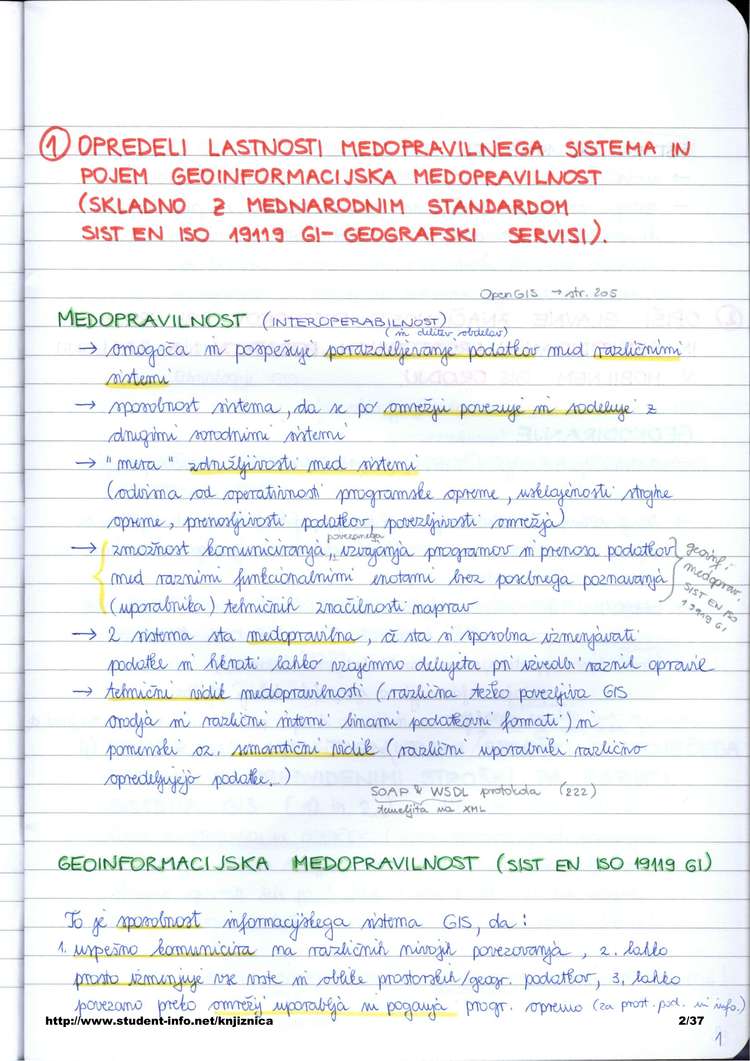 ① OPREDELI LASTNOSTI MEDOPRAVILNEGA SISTEMA IN
POJEM GEOINFORMACIJSKA MEDOPRAVILNOST
(SKLADNO Z MEDNARODNIM STANDARDOM
SIST EN ISO 19119 GI- GEOGRAFSKI SERVISI).
OpenGIS → str. 205
MEDOPRAVILNOST (INTEROPERABILNOST)
(in delitev obdelav)
→ omogoča in pospešuje porazdeljevanje podatkov med različnimi
sistemi
→ sposobnost sistema, da se po omrežju povezuje in sodeluje z
drugimi sorodnimi sistemi
→ "mera" združljivosti med sistemi
(odvisna od operativnosti programske opreme, usklajenosti strojne
opreme, prenosljivosti podatkov, povezljivosti omrežja)
povezovanja
→ zmožnost komuniciranja, izvajanja programov in prenosa podatkov
med raznimi funkcionalnimi enotami brez posebnega poznavanja
(uporabnika) tehničnih značilnosti naprav
geoinf.
medoprav.
SIST EN ISO
19119 GI
→ 2 sistema sta medopravilna, če sta si sposobna izmenjavati
podatke in hkrati lahko vzajemno delujeta pri izvedbi raznih opravil
→ tehnični vidik medopravilnosti (različna težko povezljiva GIS
orodja in različni interni binarni podatkovni formati) in
pomenski oz. semantični vidik (različni uporabniki različno
opredeljujejo podatke.)
SOAP & WSDL protokola (222)
temeljita na XML
GEOINFORMACIJSKA MEDOPRAVILNOST (SIST EN ISO 19119 GI)
To je sposobnost informacijskega sistema GIS, da:
1. uspešno komunicira na različnih nivojih povezovanja, 2. lahko
prosto izmenjuje vse vrste in oblike prostorskih/geogr. podatkov, 3. lahko
povezano preko omrežij uporablja in poganja progr. opremo (za prost. pod. in info.)
http://www.student-info.net/knjiznica
2/37
1